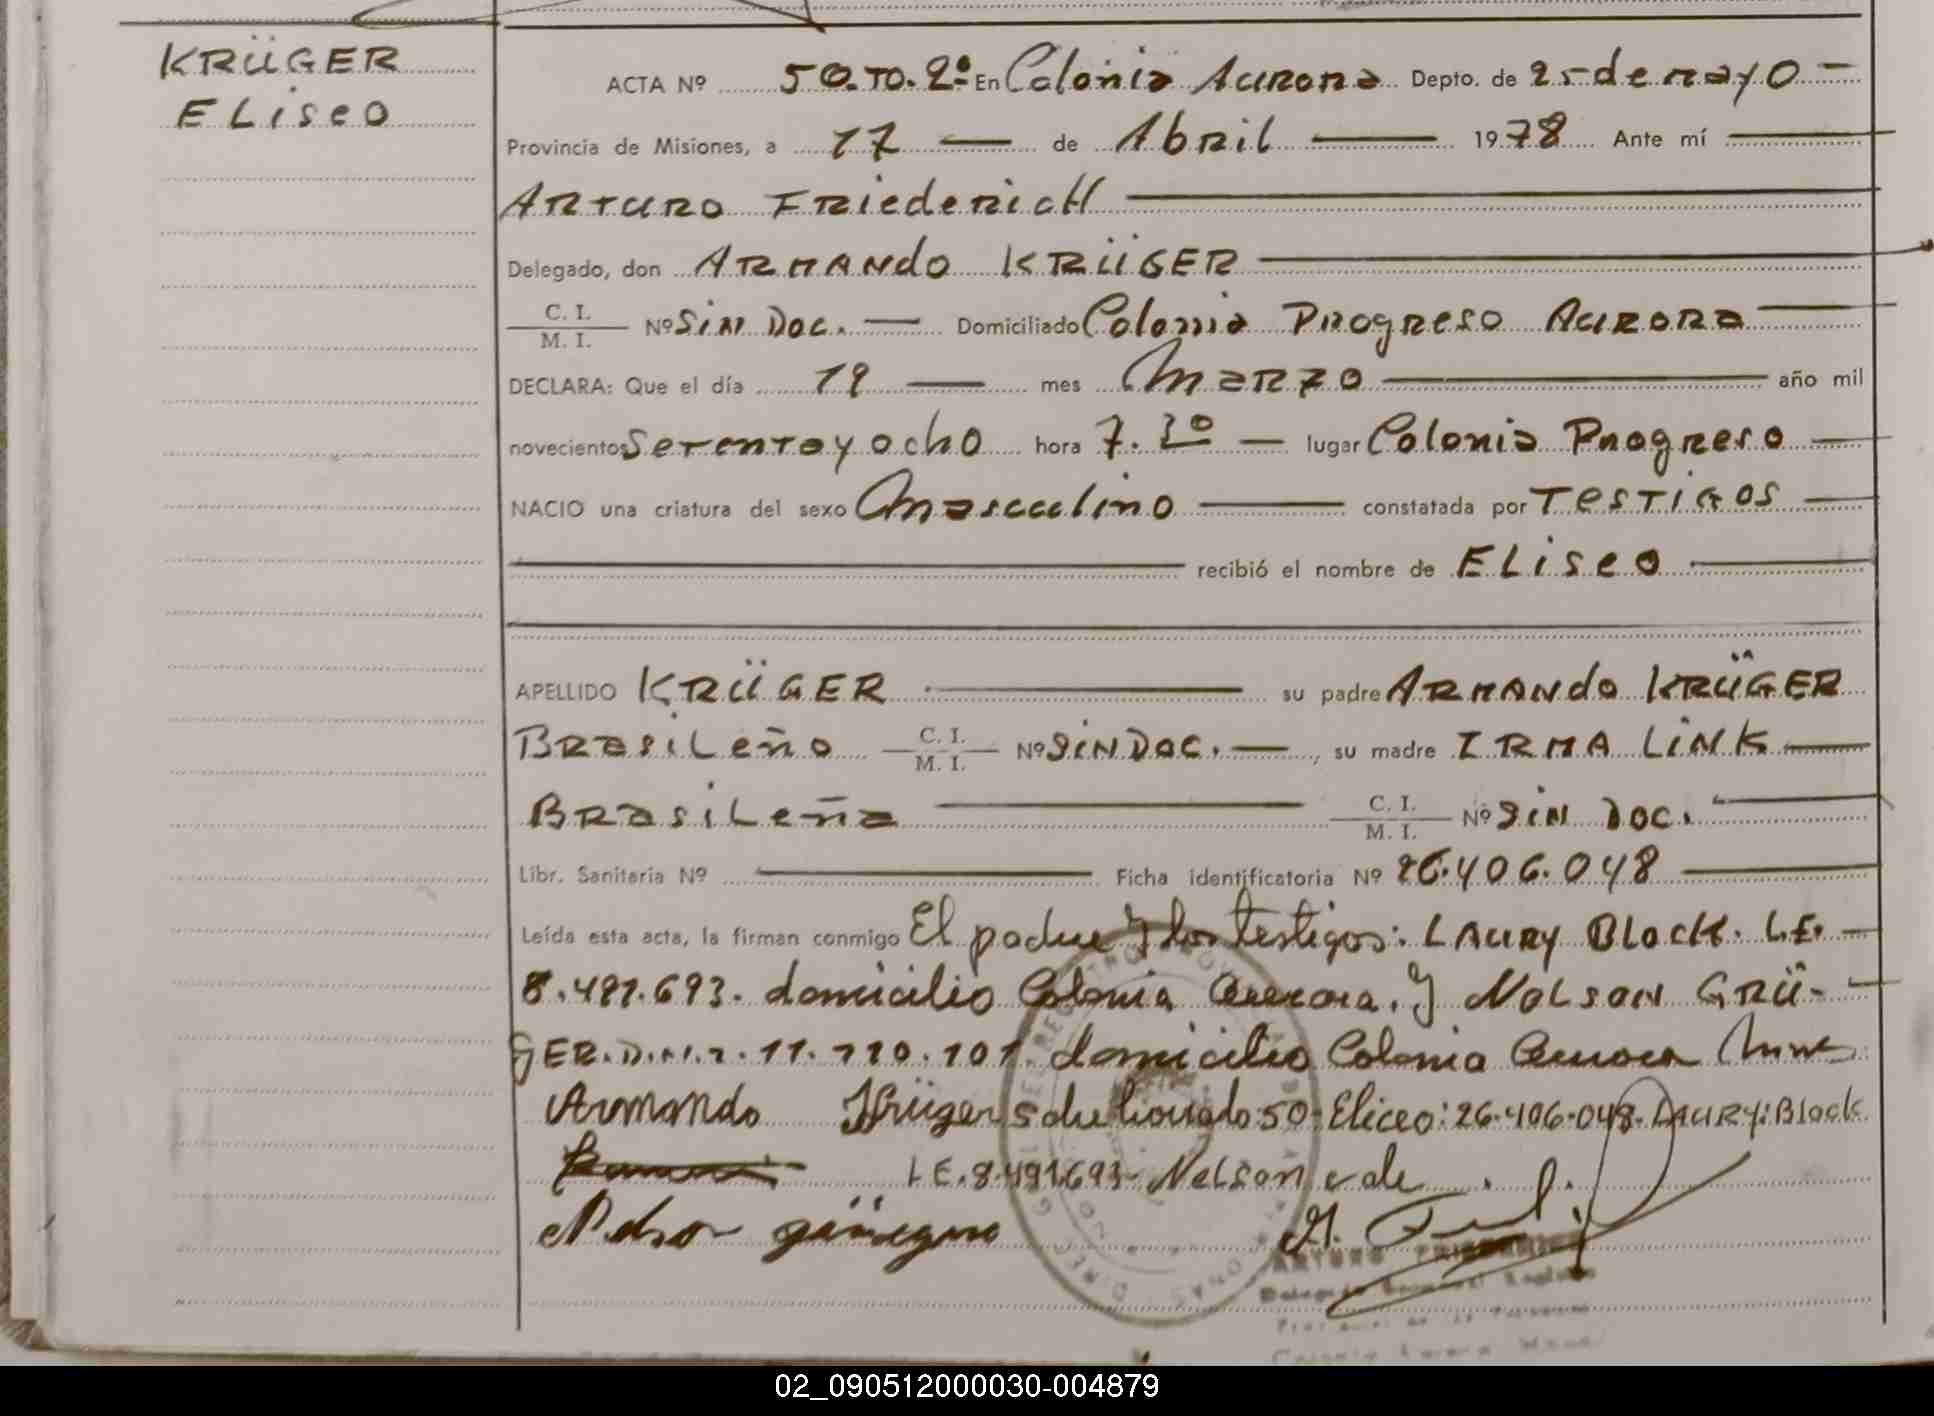 KRÜGER
ELiseo
ACTA Nº 50. TO. 2º En Colonia Aurora Depto. de 25 de mayo
Provincia de Misiones, a 17 de Abril 1978 Ante mí
ARTURO FRiedericH
Delegado, don ARMANDO KRÜGER
C. I.
M. I. Nº Sin Doc. Domiciliado Colonia Progreso Aurora
DECLARA: Que el día 19 mes Marzo año mil
novecientos Setenta y ocho hora 7.30 lugar Colonia Progreso
NACIO una criatura del sexo Masculino constatada por TESTIGOS
recibió el nombre de ELiseo
APELLIDO KRÜGER su padre ARMANDO KRÜGER
BRasiLeño C. I. M. I. Nº SiN DOC. , su madre IRMA LiNK
BRasiLeña C. I. M. I. Nº SiN DOC.
Libr. Sanitaria Nº Ficha identificatoria Nº 26.406.048
Leída esta acta, la firman conmigo El padre y los testigos: LAURY BLocK. L.E.
8.491.693. domicilio Colonia Aurora. y NeLSON GRÜ-
GER. D.N.I. 11.110.101 domicilio Colonia Aurora
Armando Krüger 50. Eliceo: 26.406.048. LAURY: Block
L E. 8.491.693 NeLSON vale
ARTURO FRIEDERICH
02_090512000030-004879